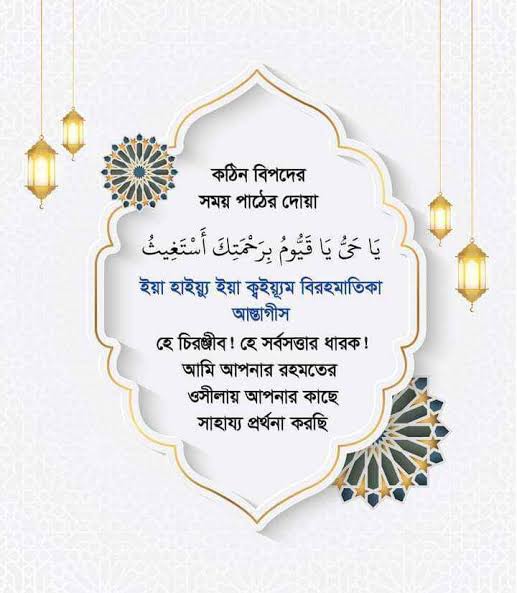 কঠিন বিপদের
সময় পাঠের দোয়া
يَا حَيُّ يَا قَيُّومُ بِرَحْمَتِكَ أَسْتَغِيثُ
ইয়া হাইয়্যু ইয়া ক্বইয়্যূম বিরহমাতিকা
আস্তাগীস
হে চিরঞ্জীব! হে সর্বসত্তার ধারক!
আমি আপনার রহমতের
ওসীলায় আপনার কাছে
সাহায্য প্রর্থনা করছি